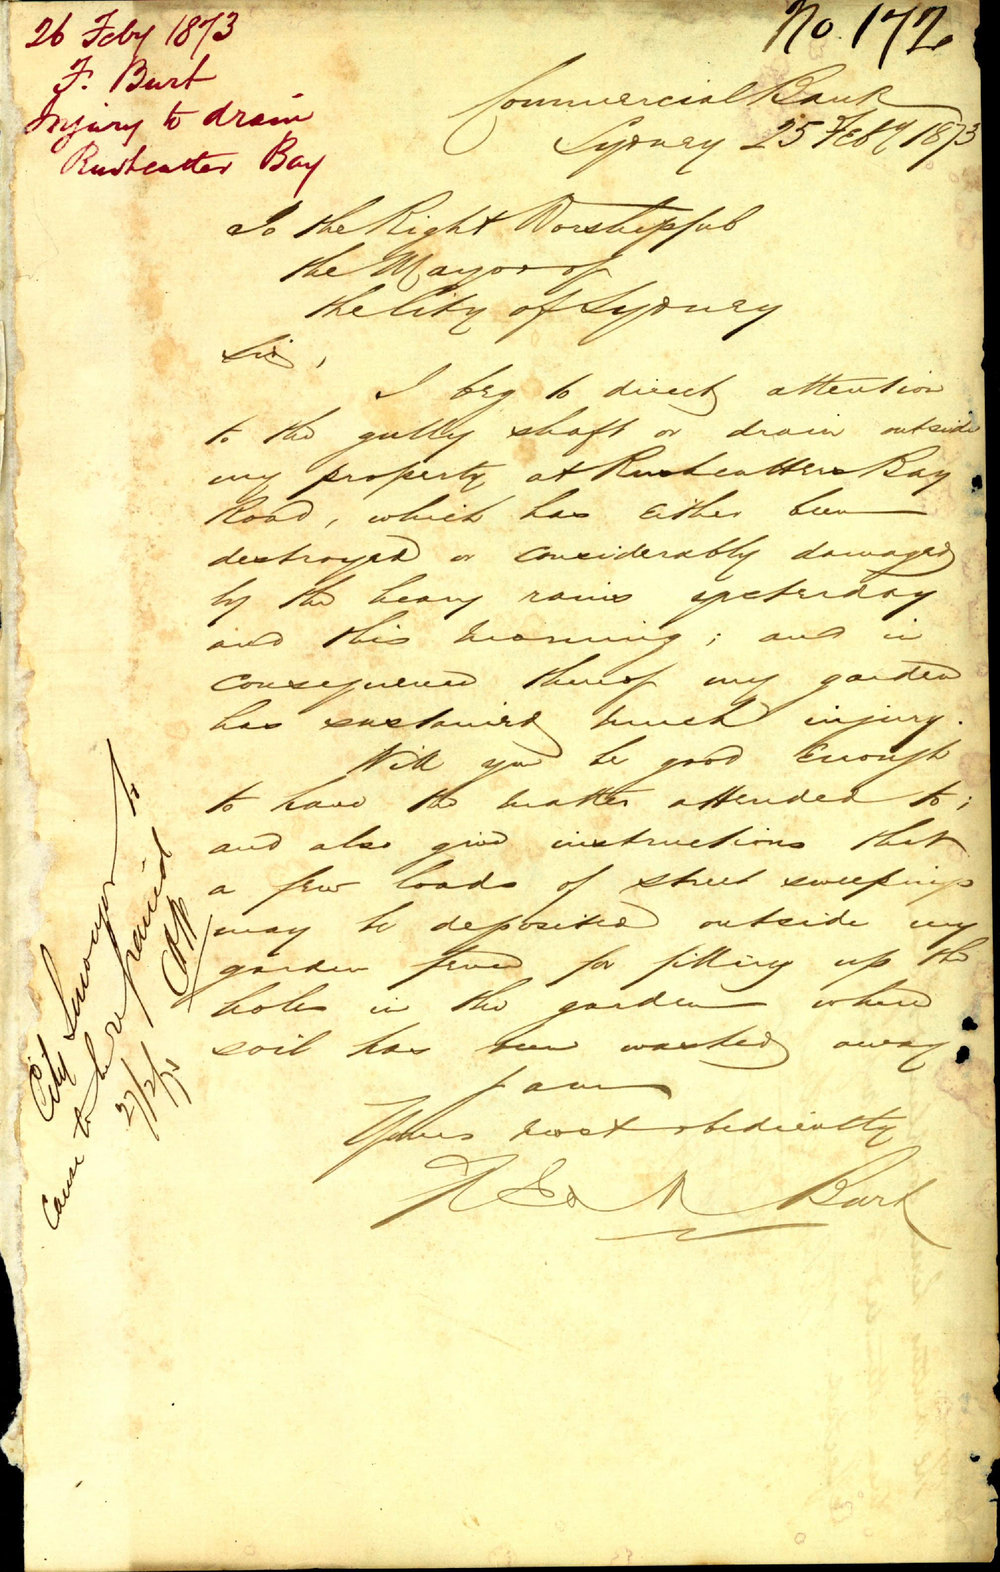 No. 172
26 Feby 1873
F. Burt
Injury to drain
Rushcutter Bay
Commercial Bank
Sydney 25 Feby 1873
To the Right Worshipful
the Mayor of
the City of Sydney
Sir,
I beg to direct attention
to the gully shaft or drain outside
my property at Rushcutters Bay
Road, which has either been
destroyed or considerably damaged
by the heavy rains yesterday
and this morning; and in
consequence thereof my garden
has sustained much injury.
Will you be good enough
to have the matter attended to;
and also give instructions that
a few loads of street sweepings
may be deposited outside my
garden fence for filling up the
holes in the garden where
soil has been washed away
I am
Yours most obediently
Burt
City Surveyor to
cause to be repaired
27/2/73